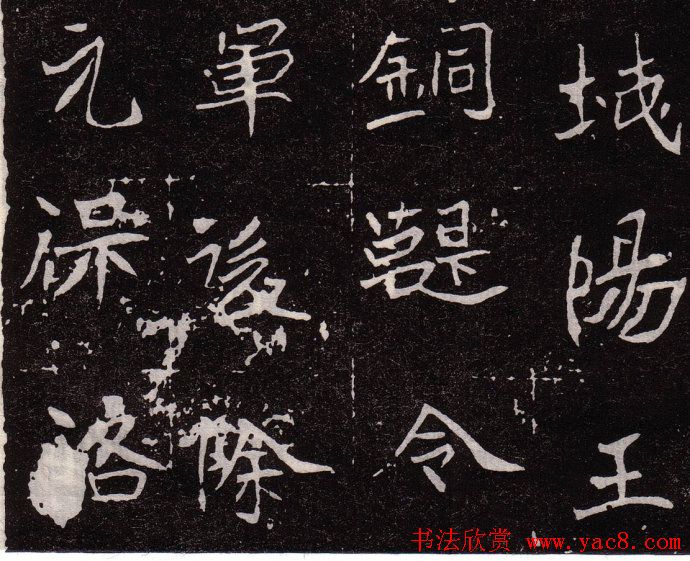 城陽王
銅鞮令
軍後除
元保洛
书法欣赏 www.yac8.com